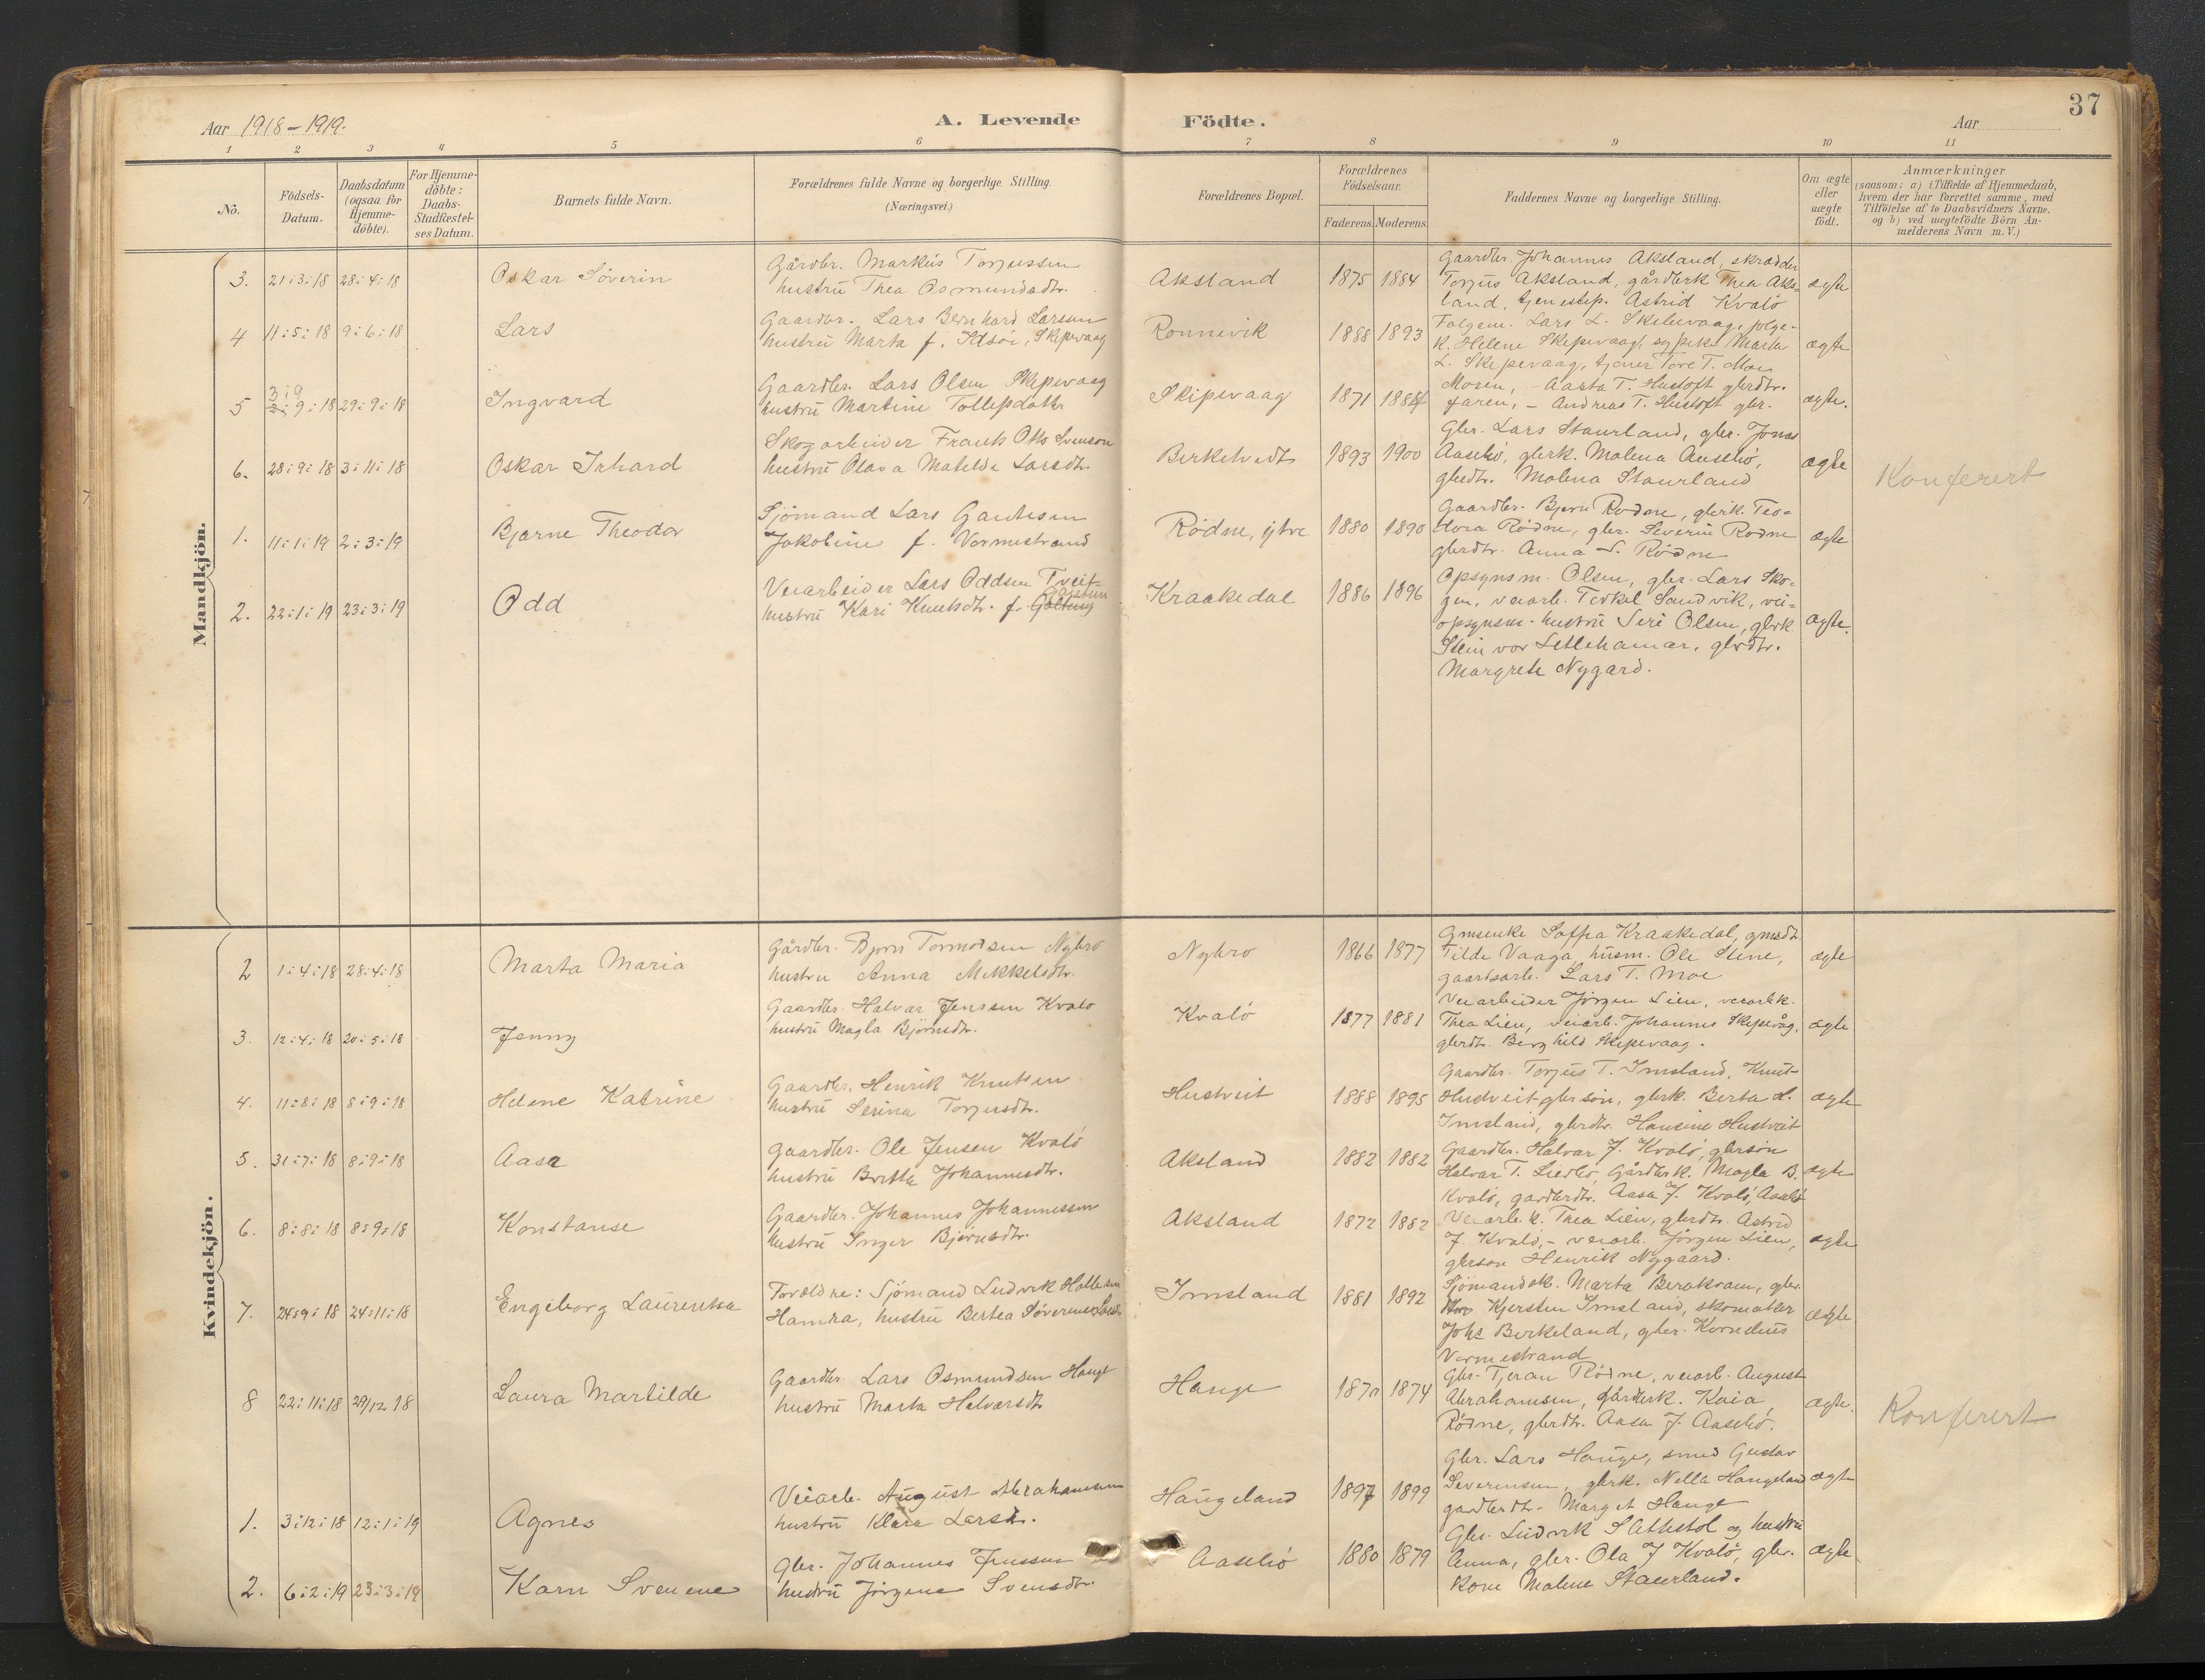 37
Aar 1918-1919.
A. Levende Födte.
Aar
1 2 3 4 5 6 7 8 9 10 11
No.
Födsels-Datum.
Daabsdatum (ogsaa for Hjemme-döbte).
For Hjemme-döbte: Daabs-Stadfæstel-ses Datum.
Barnets fulde Navn.
Forældrenes fulde Navne og borgerlige Stilling.
(Næringsvei.)
Forældrenes Bopæl.
Forældrenes Födselsaar.
Faderens. Moderens.
Faddernes Navne og borgerlige Stilling.
Om ægte eller uægte födt.
Anmærkninger
(saasom: a) i Tilfælde af Hjemmedaab,
hvem der har forrettet samme, med
Tilföielse af to Daabsvidners Navne.
og b) ved uægtefödte Börn An-
melderens Navn m. V.)
Mandkjön.
3. 21:3:18 28:4:18 Oskar Söverin
Gårdbr. Markus Torjussen
hustru Thea Osmundsdtr.
Aksland 1875 1884
Gaardbr. Johannes Aksland, skrædder
Torjus Aksland, gårdbrk Thea Aks=
land, tjenestep. Astrid Kvalö
ægte
4 11:5:18 9:6:18 Lars
Gaardbr. Lars Bernhard Larsen
hustru Marta f. Idsöi, Skipevaag
Ronnevik 1888 1893
Folgem. Lars L. Skipevaag, folge-
k. Helene Skipevaag, sypike Marta
L. Skipevaag, tjener Tore T. Moe
ægte
5 3:9 2:9:18 29:9:18 Ingvard
Gaardbr. Lars Olsen Skipevaag
hustru Martine Tollefsdatter
Skipevaag 1871 1884
Moren, - Aasta T. Hustoft gbrdtr.
faren, - Andreas T. Hustoft gbr.
ægte.
6. 28:9:18 3:11:18 Oskar Irhard
Skogarbeider Frank Otto Svenson
hustru Olava Matilde Larsdtr.
Birkelvedt 1893 1900
Gbr. Lars Staurland, gbr. Jonas
Aasebö, gbrk. Malena Aasebö,
gbrdtr. Malena Staurland
ægte
Konferert
1. 11:1:19 2:3:19 Bjarne Theodor
Sjömand Lars Gautesen
Jakobine f. Vormestrand
Rödne, ytre 1880 1890
Gaardbr. Bjørn Rodne, gbrk. Teo=
dora Rödne, gbr. Severin Rodne
gbrdtr. Anna S. Rödne
ægte
2. 22:1:19 23:3:19 Odd
Veiarbeider Lars Oddsen Tveit-
hustru Kari Knutsdtr. f.
Kraakedal 1886 1896
Opsynsm. Olsen, gbr. Lars Sko=
gen, veiarb. Terkel Sandvik, vei=
opsynsm. hustru Seri Olsen, gbrk
Steinvor Litlehamar, gbrdtr.
Margrete Nygard.
ægte.
Kvindekjön.
2 1:4:18 28:4:18 Marta Maria
Gårdbr. Bjørn Tormodsen Nybro
hustru Anna Mikkelsdtr.
Nybro 1866 1877
Gmsenke Soffia Kraakedal, gmsdt.
Tilda Vaaga, husm. Ole Stene,
gaardsarb. Lars T. Moe
ægte
3. 12:4:18 20:5:18 Jenny
Gaardbr. Halvar Jenssen Kvalö
hustru Magla Björnsdtr.
Kvalö 1877 1881
Veiarbeider Jörgen Lien, veiarbk.
Thea Lien, veiarb. Johannes Skipevåg,
gbrdtr. Berghild Skipevaag.
ægte
4. 11:8:18 8:9:18 Helene Katrine
Gaardbr. Henrik Knutsen
hustru Serina Torjusdtr.
Hustveit 1888 1895
Gaardbr. Torjus T. Imsland, Knut
Hustveit gbrsön, gbrk. Berta L.
Imsland, gbrdtr. Hansine Hustveit
ægte
5. 31:7:18 8:9:18 Aasa
Gaardbr. Ole Jensen Kvalö
hustru Britta Johannesdtr.
Aksland 1882 1882
Gaardbr. Halvar J. Kvalö, gbrsön
Halvar T. Liedbø, Gårdbrk. Magla B.
Kvalö, gardbrdtr. Aasa J. Kvalö, Aasebö
ægte
6. 8:8:18 8:9:18 Konstanse
Gaardbr. Johannes Johannessen
hustru Inger Bjørnsdtr.
Aksland 1872 1882
Veiarb. k. Thea Lien, gbrdtr. Astrid
J. Kvalö, - veiarb. Jörgen Lien,
gbrson Henrik Nygaard.
ægte
7. 24:9:18 24:11:18 Engeborg Laurentsa
Foreldre: Sjömand Ludvik Hallesen
Hamra, hustru Bertea Söverinesdtr.
Imsland 1881 1892
Sjömandsk. Marta Berakvam, gbr.
Kjersten Imsland, skomaker
Johs Birkeland, gbr. Kornelius
Vormestrand
ægte
8 22:11:18 29/12 18 Laura Martilde
Gaardbr Lars Osmundsen Hauge
hustru Marta Halvarsdtr
Hauge 1870 1874
Gbr. Tjeran Rödne, veiarb. August
Abrahamsen, gårdbrk. Kaia
Rödne, gbrdtr. Aasa J. Aasebö.
ægte.
Konferert
1. 3:12:18 12:1:19 Agnes
Veiarb. August Abrahamsen
hustru Klara Larsd.
Haugeland 1897 1899
Gbr. Lars Hauge, smed Gustav
Severinsen, gbrk. Nella Haugeland
gardbrdtr. Marget Hauge
ægte
2. 6:2:19 23:3:19 Karn Svenene
Gbr. Johannes Jenssen
hustru Jörgene Svensdtr.
Aasebö 1880 1879
Gbr. Ludvik Slettstöl og hustru
Anna, gbr. Ola J Kvalö, gbr.
kone Malene Staurland.
ægte